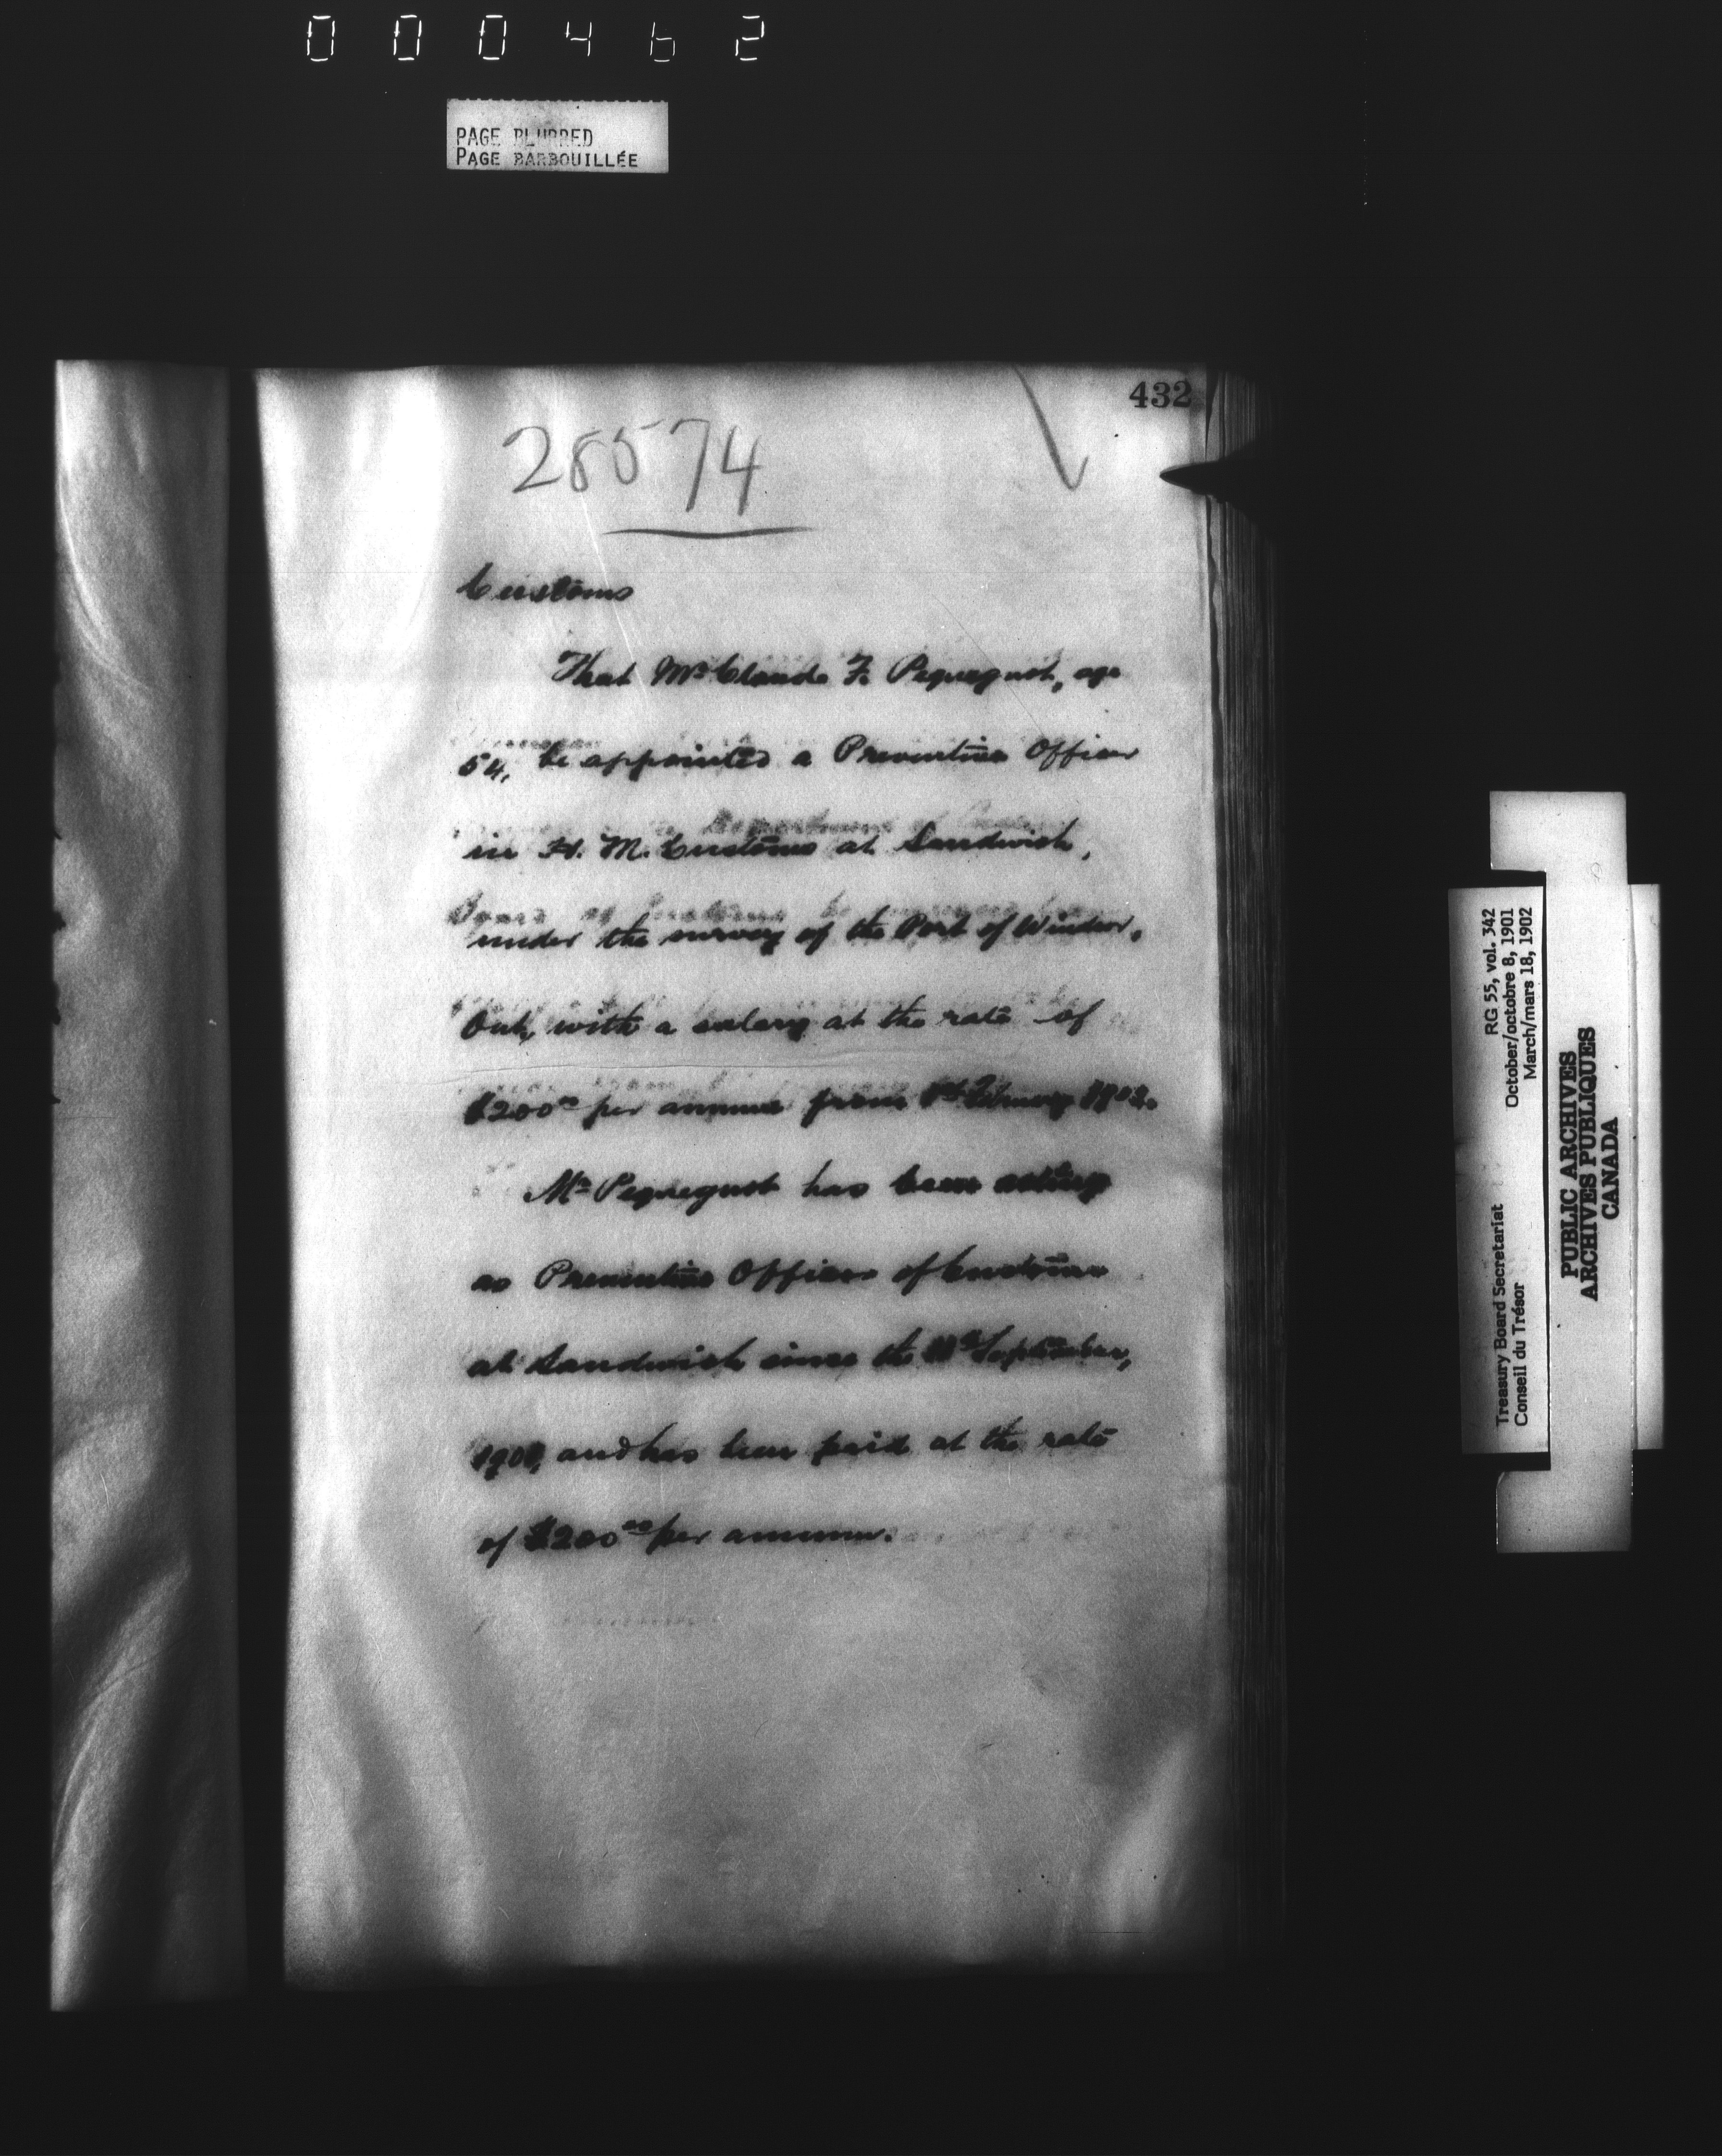 000462
PAGE BLURRED
PAGE BARBOUILLÉE
432
28574
Customs
That Mr Claude F. Pequegnot, age
54, be appointed a Preventive Officer
in H. M. Customs at Sandwich,
under the survey of the Port of Windsor,
Ont, with a salary at the rate of
$200⁰⁰ per annum from 1st February 1902.
Mr Pequegnot has been acting
as Preventive Officer of Customs
at Sandwich since the September,
1901, and has been paid at the rate
of $200⁰⁰ per annum.
RG 55, vol. 342
October/octobre 8, 1901
March/mars 18, 1902
Treasury Board Secretariat
Conseil du Trésor
PUBLIC ARCHIVES
ARCHIVES PUBLIQUES
CANADA